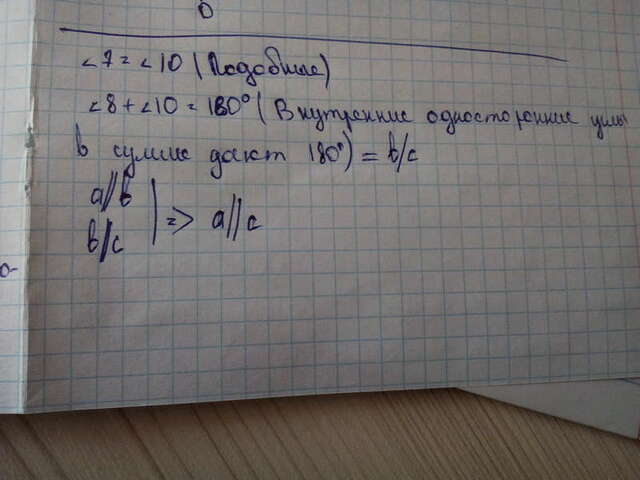 0
∠7=∠10 (Подобные)
∠8+∠10=180° (Внутренние односторонние углы
в сумме дают 180°) = b//c
a//b
b//c | => a//c
0-